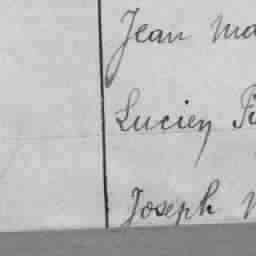 Jean Ma
Lucien
Joseph